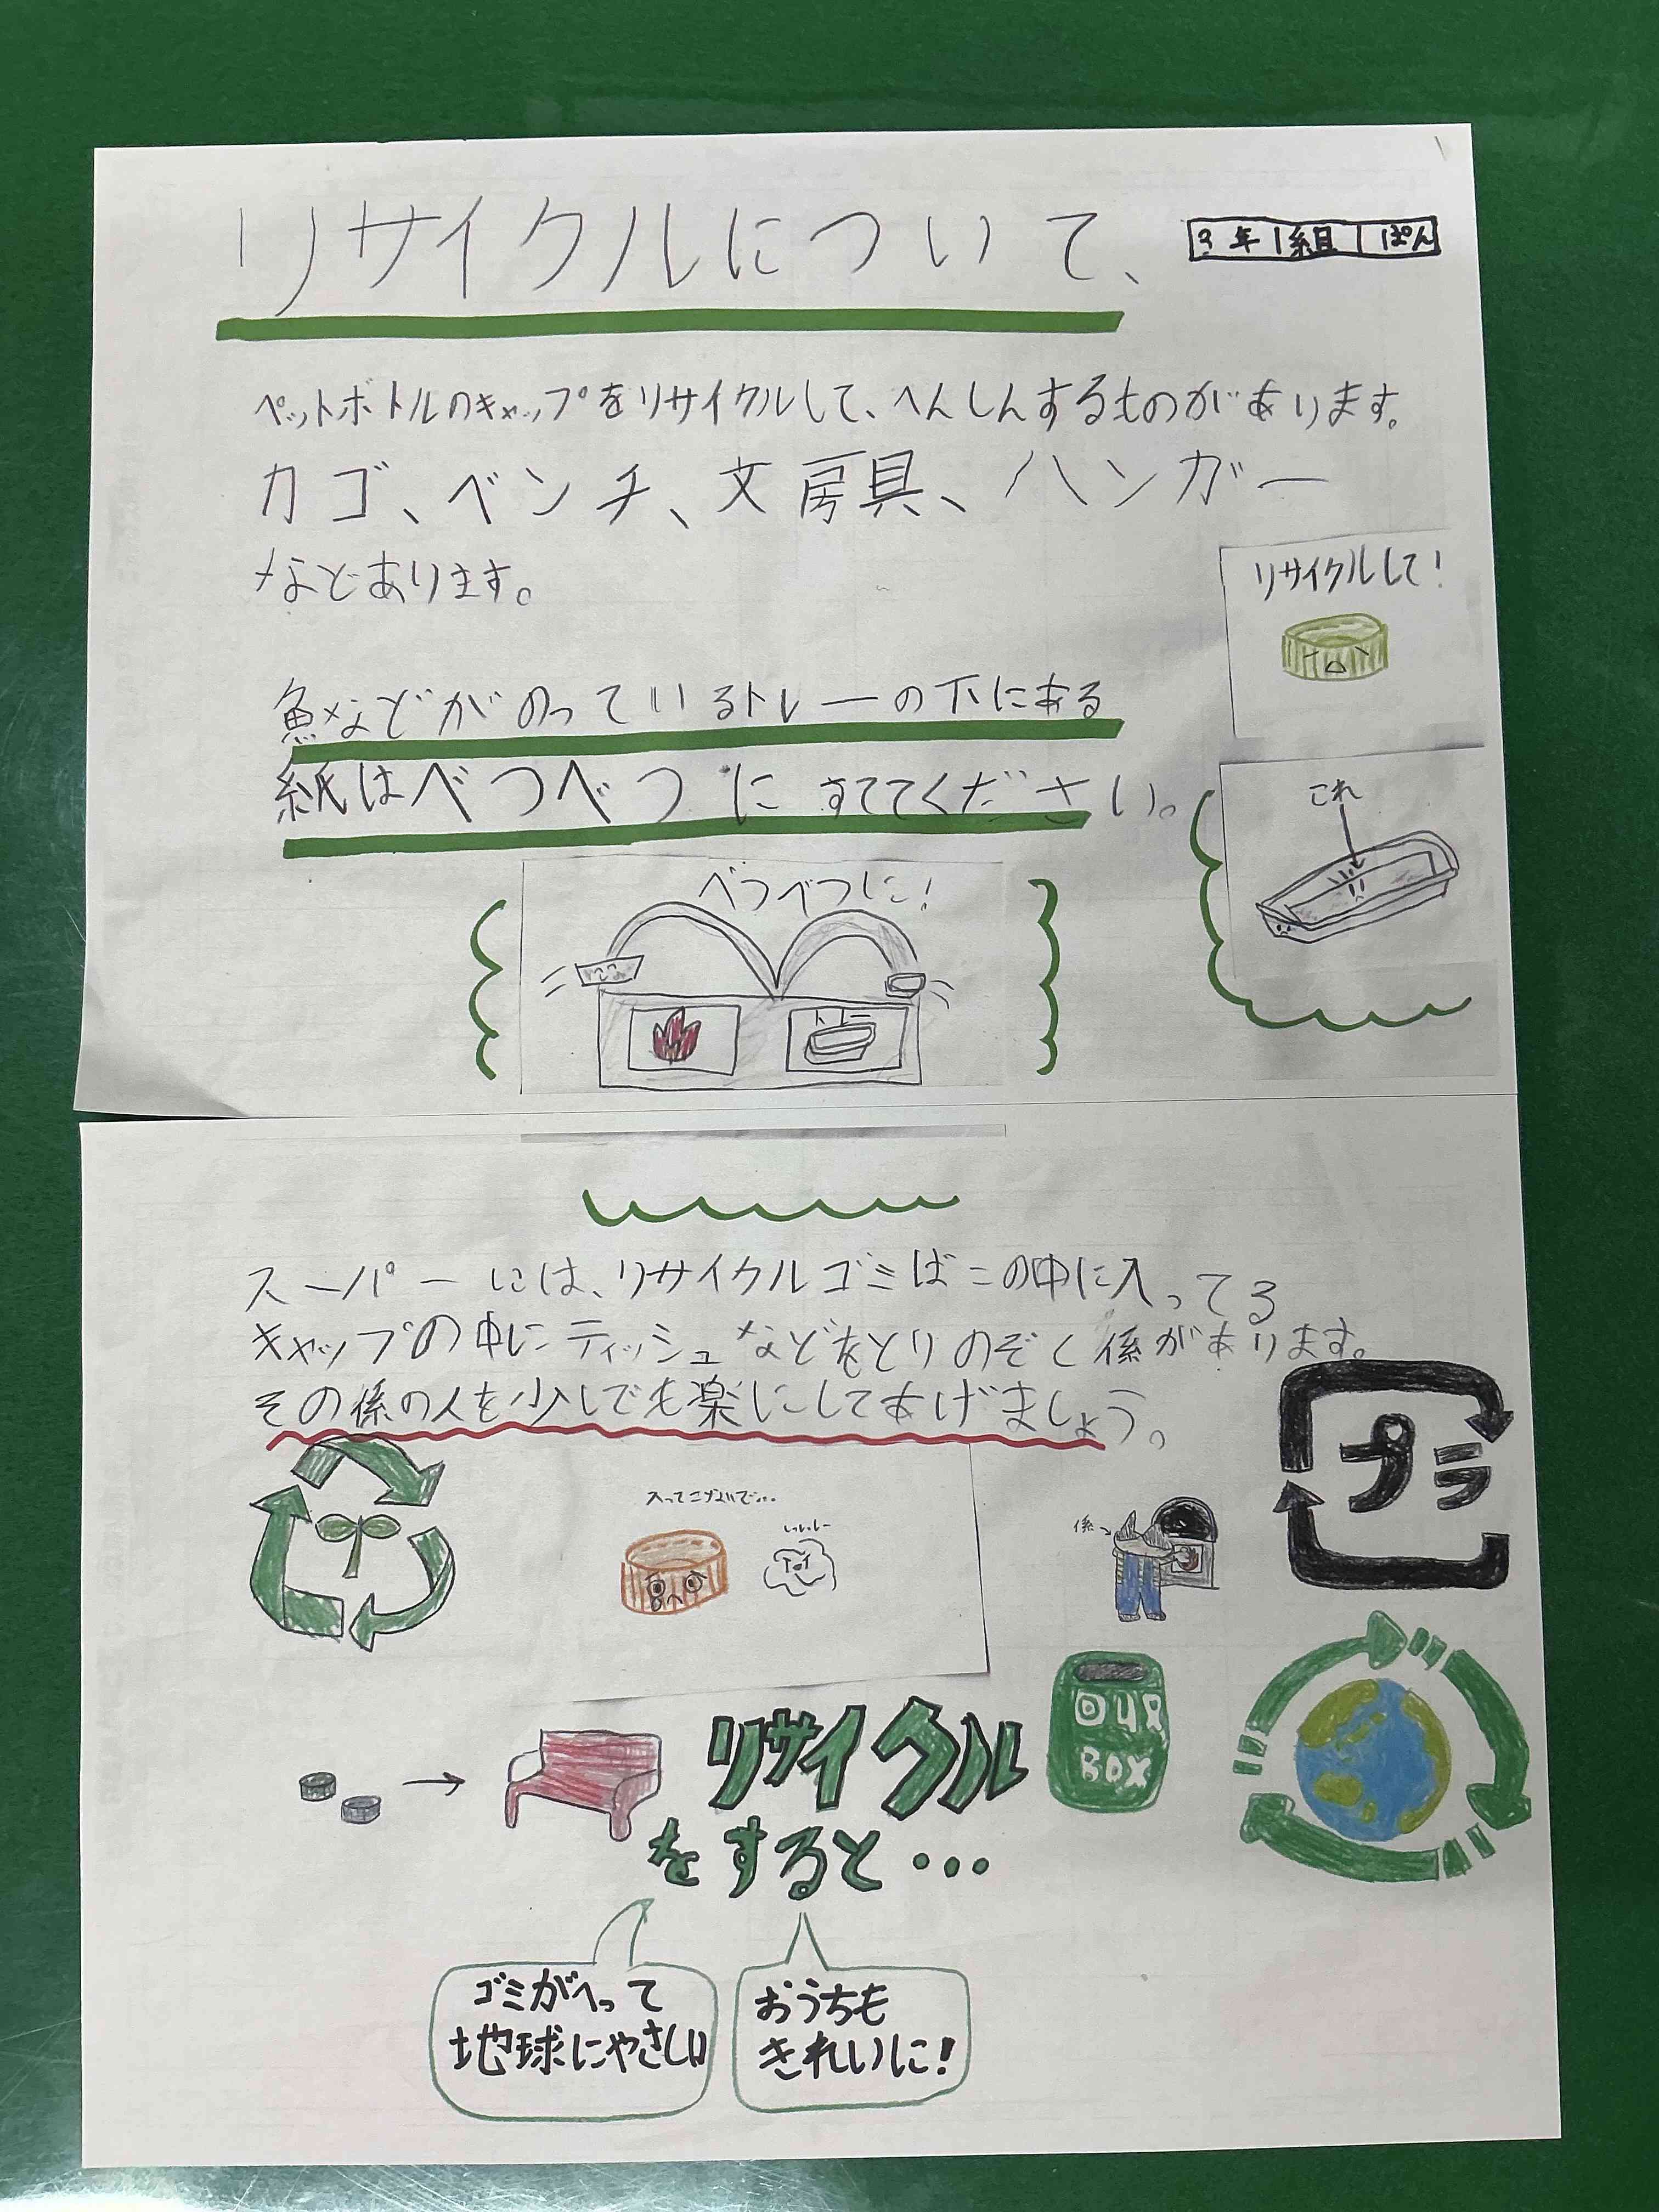 リサイクルについて、
3年1組 1ぱん
ペットボトルのキャップをリサイクルして、へんしんするものがあります。
カゴ、ベンチ、文房具、ハンガー
などあります。
リサイクルして!
魚などがのっているトレーの下にある
紙はべつべつにすててください。
これ
べつべつに!
トレー
スーパーには、リサイクルゴミばこの中に入ってる
キャップの中にティッシュなどをとりのぞく係があります。
その係の人を少しでも楽にしてあげましょう。
プラ
入ってこないで…
いいしー
係
リサイクル
をすると…
OUR
BOX
ゴミがへって
地球にやさしい
おうちも
きれいに!